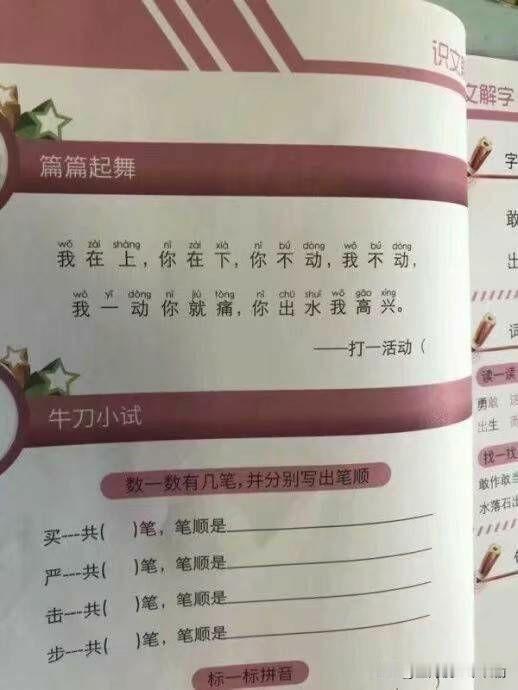 识文
篇篇起舞
wǒ zài shàng nǐ zài xià nǐ bú dòng wǒ bú dòng
我在上，你在下，你不动，我不动，
wǒ yī dòng nǐ jiù tòng nǐ chū shuǐ wǒ gāo xìng
我一动你就痛，你出水我高兴。
——打一活动（
牛刀小试
数一数有几笔，并分别写出笔顺
买---共( )笔，笔顺是
严---共( )笔，笔顺是
击---共( )笔，笔顺是
步---共( )笔，笔顺是
标一标拼音
文解字
字
敢
出
词
读一读
勇敢
出生 而
找一找
敢作敢当
水落石出